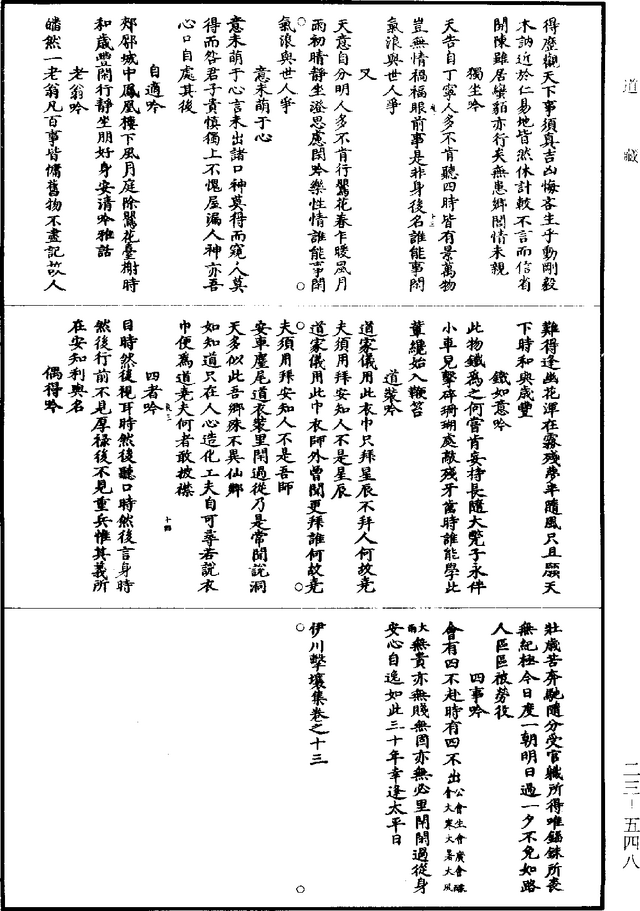 道藏
得歷觀天下事須真吉凶悔吝生乎動剛毅
木訥近於仁易地皆然休計較不言而信省
開陳雖居蠻貊亦行矣無患鄉閭情未親
獨坐吟
天告自丁寧人多不肯聽四時皆有景萬物
豈無情禍福眼前事是非身後名誰能事閑
氣浪與世人爭
又
天意自分明人多不肯行鶯花春乍暖風月
雨初晴靜坐澄思慮閑吟樂性情誰能事閑
氣浪與世人爭
意未萌于心
意未萌于心言未出諸口神莫得而窺人莫
得而咎君子貴慎獨上不愧屋漏人神亦吾
心口自處其後
自適吟
郊鄏城中鳳凰樓下風月庭除鶯花臺榭時
和歲豐閑行靜坐朋好身安清吟雅話
老翁吟
皤然一老翁凡百事皆慵舊物不盡記故人
難得逢幽花渾在霧殘夢半隨風只且願天
下時和與歲豐
鐵如意吟
此物鐵為之何嘗肯妄持長隨大斃子永伴
小車兒擊碎珊瑚處敲殘牙齒時誰能學此
輩纔始入鞭笞
道裝吟
道家儀用此衣巾只拜星辰不拜人何故堯
夫須用拜安知人不是星辰
道家儀用此巾衣師外曾聞更拜誰何故堯
夫須用拜安知人不是吾師
安車麈尾道衣裝里閈過從乃是常聞說洞
天多似此吾鄉殊不異仙鄉
如知道只在人心造化工夫自可尋若說衣
巾便為道堯夫何者敢披襟
四者吟
目時然後視耳時然後聽口時然後言身時
然後行前不見厚祿後不見重兵惟其義所
在安知利與名
偶得吟
壯歲苦奔馳隨分受官職所得唯錙銖所喪
無紀極今日度一朝明日過一夕不免如路
人區區被勞役
四事吟
會有四不赴時有四不出公會生會廣會醵會大寒大暑大風大雨
無貴亦無賤無固亦無必里閈閑過從身
安心自逸如此三十年幸逢太平日
伊川擊壤集卷之十三
二三－五四八